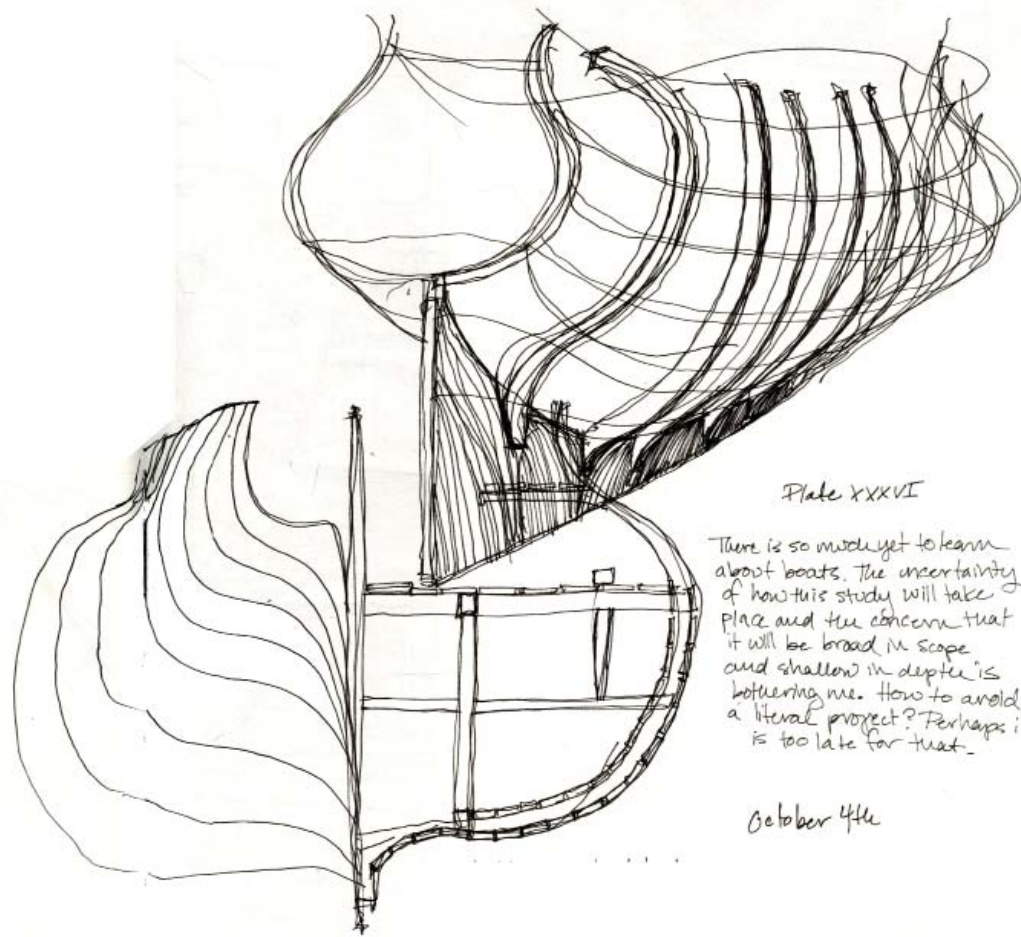 Plate XXXVI
There is so much yet to learn
about boats. The uncertainty
of how this study will take
place and the concern that
it will be broad in scope
and shallow in depth is
bothering me. How to avoid
a literal project? Perhaps i
is too late for that.
October 4th